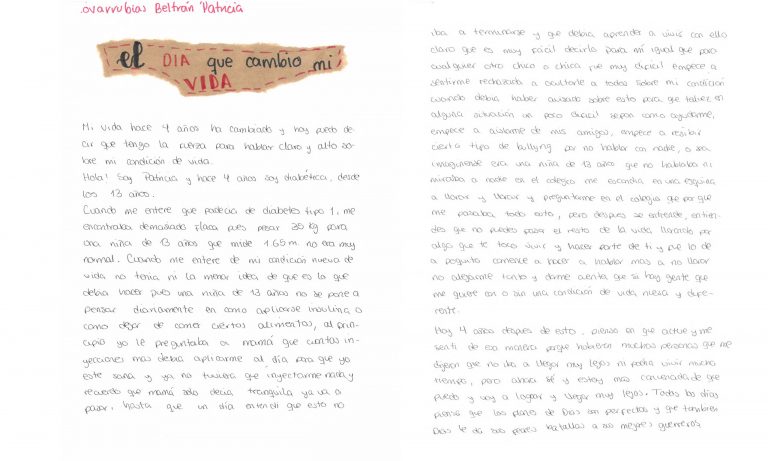 ovarrubias Beltrán Patricia
el DIA que cambio mi
VIDA
Mi vida hace 4 años ha cambiado y hoy puedo de-
cir que tengo la fuerza para hablar claro y alto so-
bre mi condición de vida.
Hola! Soy Patricia y hace 4 años soy diabética, desde
los 13 años.
Cuando me entere que padecia de diabetes tipo 1, me
encontraba demasiado flaca pues pesar 30 kg para
una niña de 13 años que mide 1.65 m. no era muy
normal. Cuando me entere de mi condición nueva de
vida no tenia ni la menor idea de que es lo que
debia hacer pues una niña de 13 años no se pone a
pensar diariamente en como aplicarse insulina, o
como dejar de comer ciertos alimentos, al prin-
cipio yo le preguntaba a mamá que cuantas in-
yecciones mas debia aplicarme al día para que ya
este sana y ya no tuviera que inyectarme nada y
recuerdo que mamá solo decia tranquila ya va a
pasar, hasta que un día entendi que esto no
iba a terminarse y que debia aprender a vivir con ello
claro que es muy facil decirlo para mi igual que para
cualquier otro chico o chica fue muy dificil empece a
sentirme rechazada a ocultarle a todos sobre mi condición
cuando debia haber avisado sobre esto para que talvez en
alguna situación un poco dificil sepan como ayudarme,
empece a aislarme de mis amigos, empece a recibir
cierto tipo de bullying por no hablar con nadie, o sea
imaginense era una niña de 13 años que no hablaba ni
miraba a nadie en el colegio me escondia en una esquina
a llorar y llorar y preguntarme en el colegio que por que
me pasaba todo esto, pero despues se entiende, entien-
des que no puedes pasar el resto de la vida llorando por
algo que te toco vivir y hacer parte de ti y fue lo de
a poquito comence a hacer a hablar mas a no llorar
no alejarme tanto y darme cuenta que si hay gente que
me quiere con o sin una condición de vida nueva y dife-
rente.
Hoy 4 años despues de esto, pienso en que actue y me
senti de esa manera porque hubieron muchas personas que me
dijeron que no iba a llegar muy lejos ni podia vivir mucho
tiempo, pero ahora sé y estoy mas convencida de que
puedo y voy a lograr y llegar muy lejos. Todos los días
pienso que los planes de Dios son perfectos y que tambien
Dios le da sus peores batallas a sus mejores guerreros.